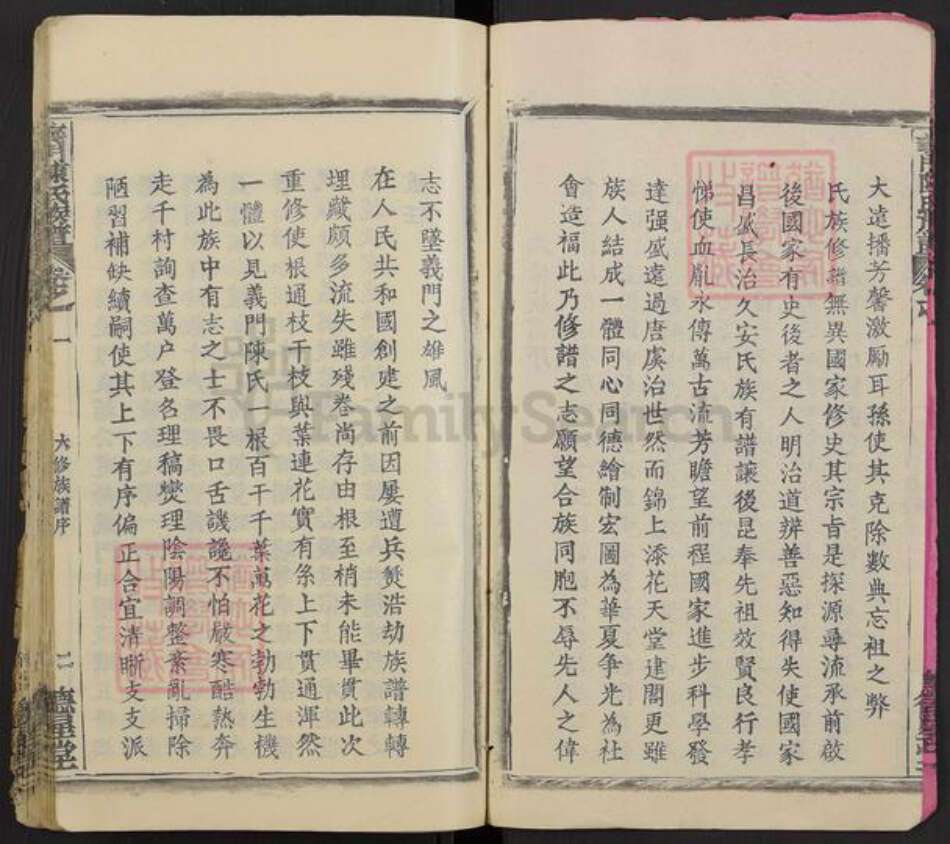 大遠播芳馨激勵耳孫使其克除數典忘祖之弊
氏族修譜無異國家修史其宗旨是探源尋流承前啟
後國家有史後者之人明治道辨善惡知得失使國家
昌盛長治久安氏族有譜讓後昆奉先祖效賢良行孝
悌使血胤永傳萬古流芳瞻望前程國家進步科學發
達强盛遠過唐虞治世然而錦上添花天堂建閣更雖
族人結成一體同心同德繪制宏圖為華夏爭光為社
會造福此乃修譜之志願望合族同胞不辱先人之偉
志不墜義門之雄風
在人民共和國創建之前因屢遭兵燹浩劫族譜轉轉
埋藏頗多流失雖殘卷尚存由根至梢未能畢貫此次
重修使根通枝干枝與葉連花實有条上下貫通渾然
一體以見義門陳氏一根百干千葉萬花之勃勃生機
為此族中有志之士不畏口舌譏讒不怕嚴寒酷熱奔
走千村詢查萬户登名理稿燮理陰陽調整紊亂掃除
陋習補缺續嗣使其上下有序偏正合宜清晰支支派
陳氏族譜
卷之一
六修族譜序
二
德星堂
FamilySearch